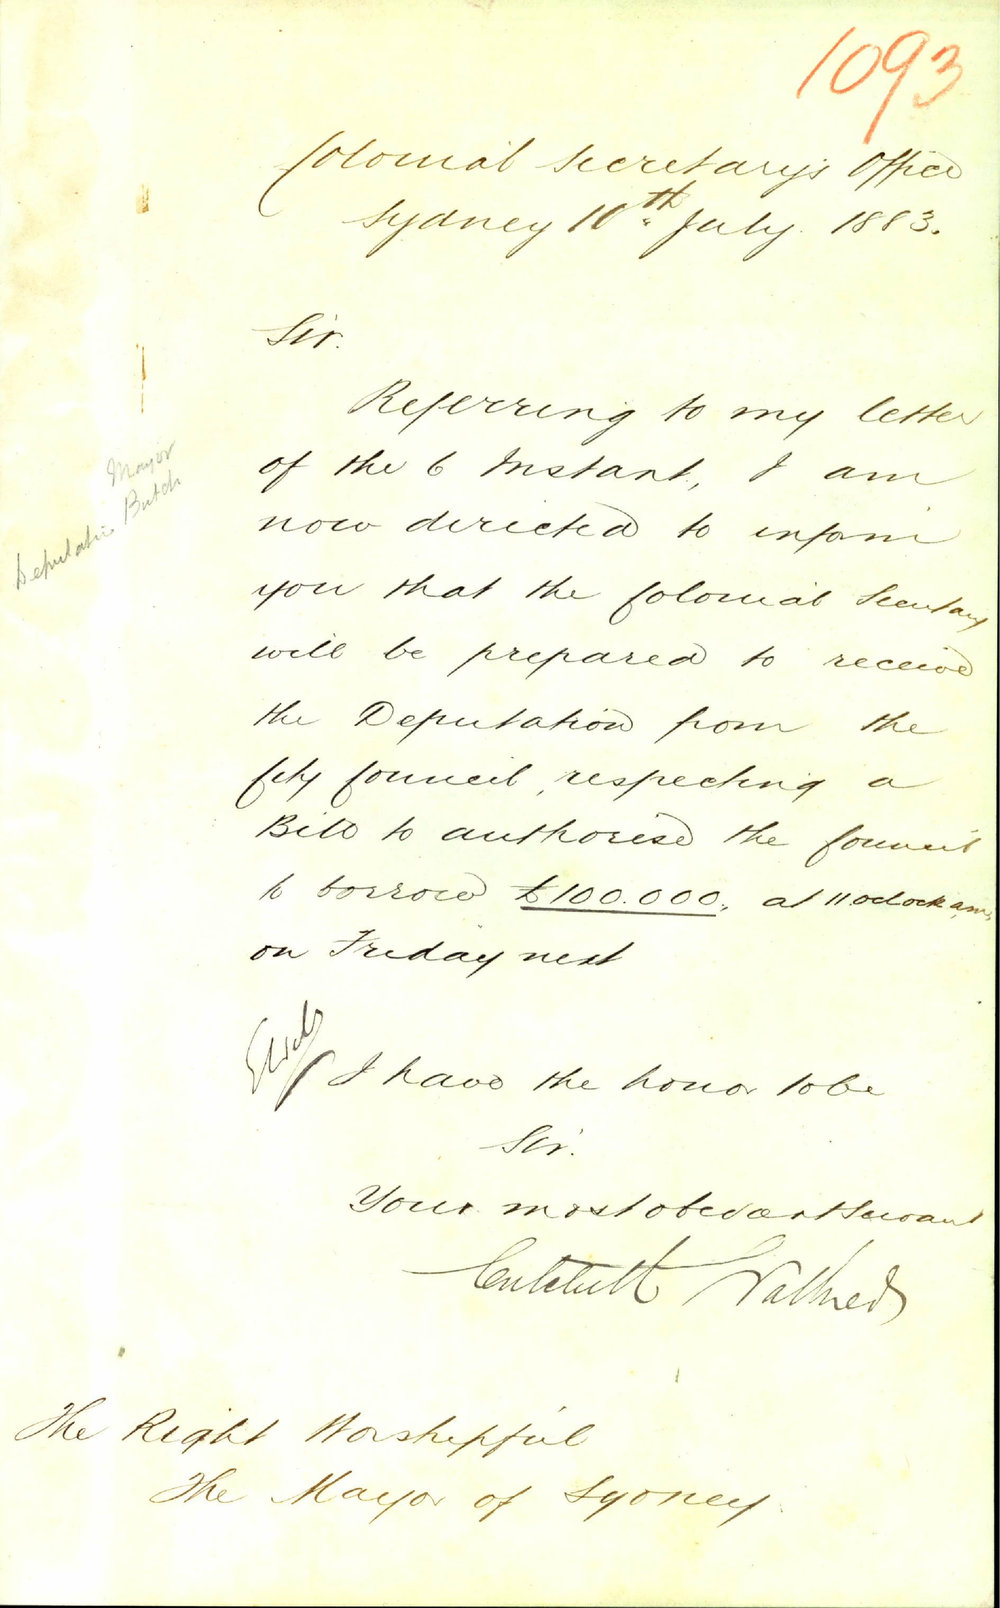 1093
Colonial Secretary's Office
Sydney 10th July. 1883.
Sir.
Referring to my letter
of the 6 Instant, I am
now directed to inform
you that the Colonial Secretary
will be prepared to receive
the Deputation from the
City Council, respecting a
Bill to authorise the Council
to borrow £100.000., at 11 oclock a.m.
on Friday next
I have the honor to be
Sir.
Your most obedient Servant
Critchett Walker
The Right Worshipful
The Mayor of Sydney.
Mayor